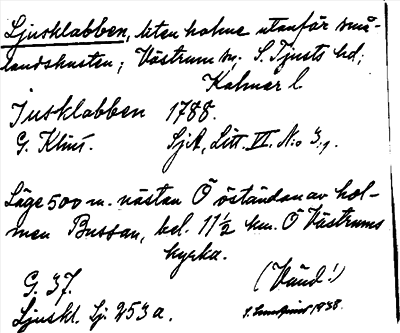 Ljusklabben, liten holme utanför små-
landskusten; Västrum sn. S. Tjusts hd;
Kalmar l.
Jusklabben 1788.
G. Klint. SjA, Litt. VI. N:o 3,
Läge 500 m. nästan Ö öständan av hol-
men Bussan, bel. 11½ km. Ö Västrums
kyrka.
G. 37. (Vänd!)
Ljuskl. Sj. 253 a. 1938.